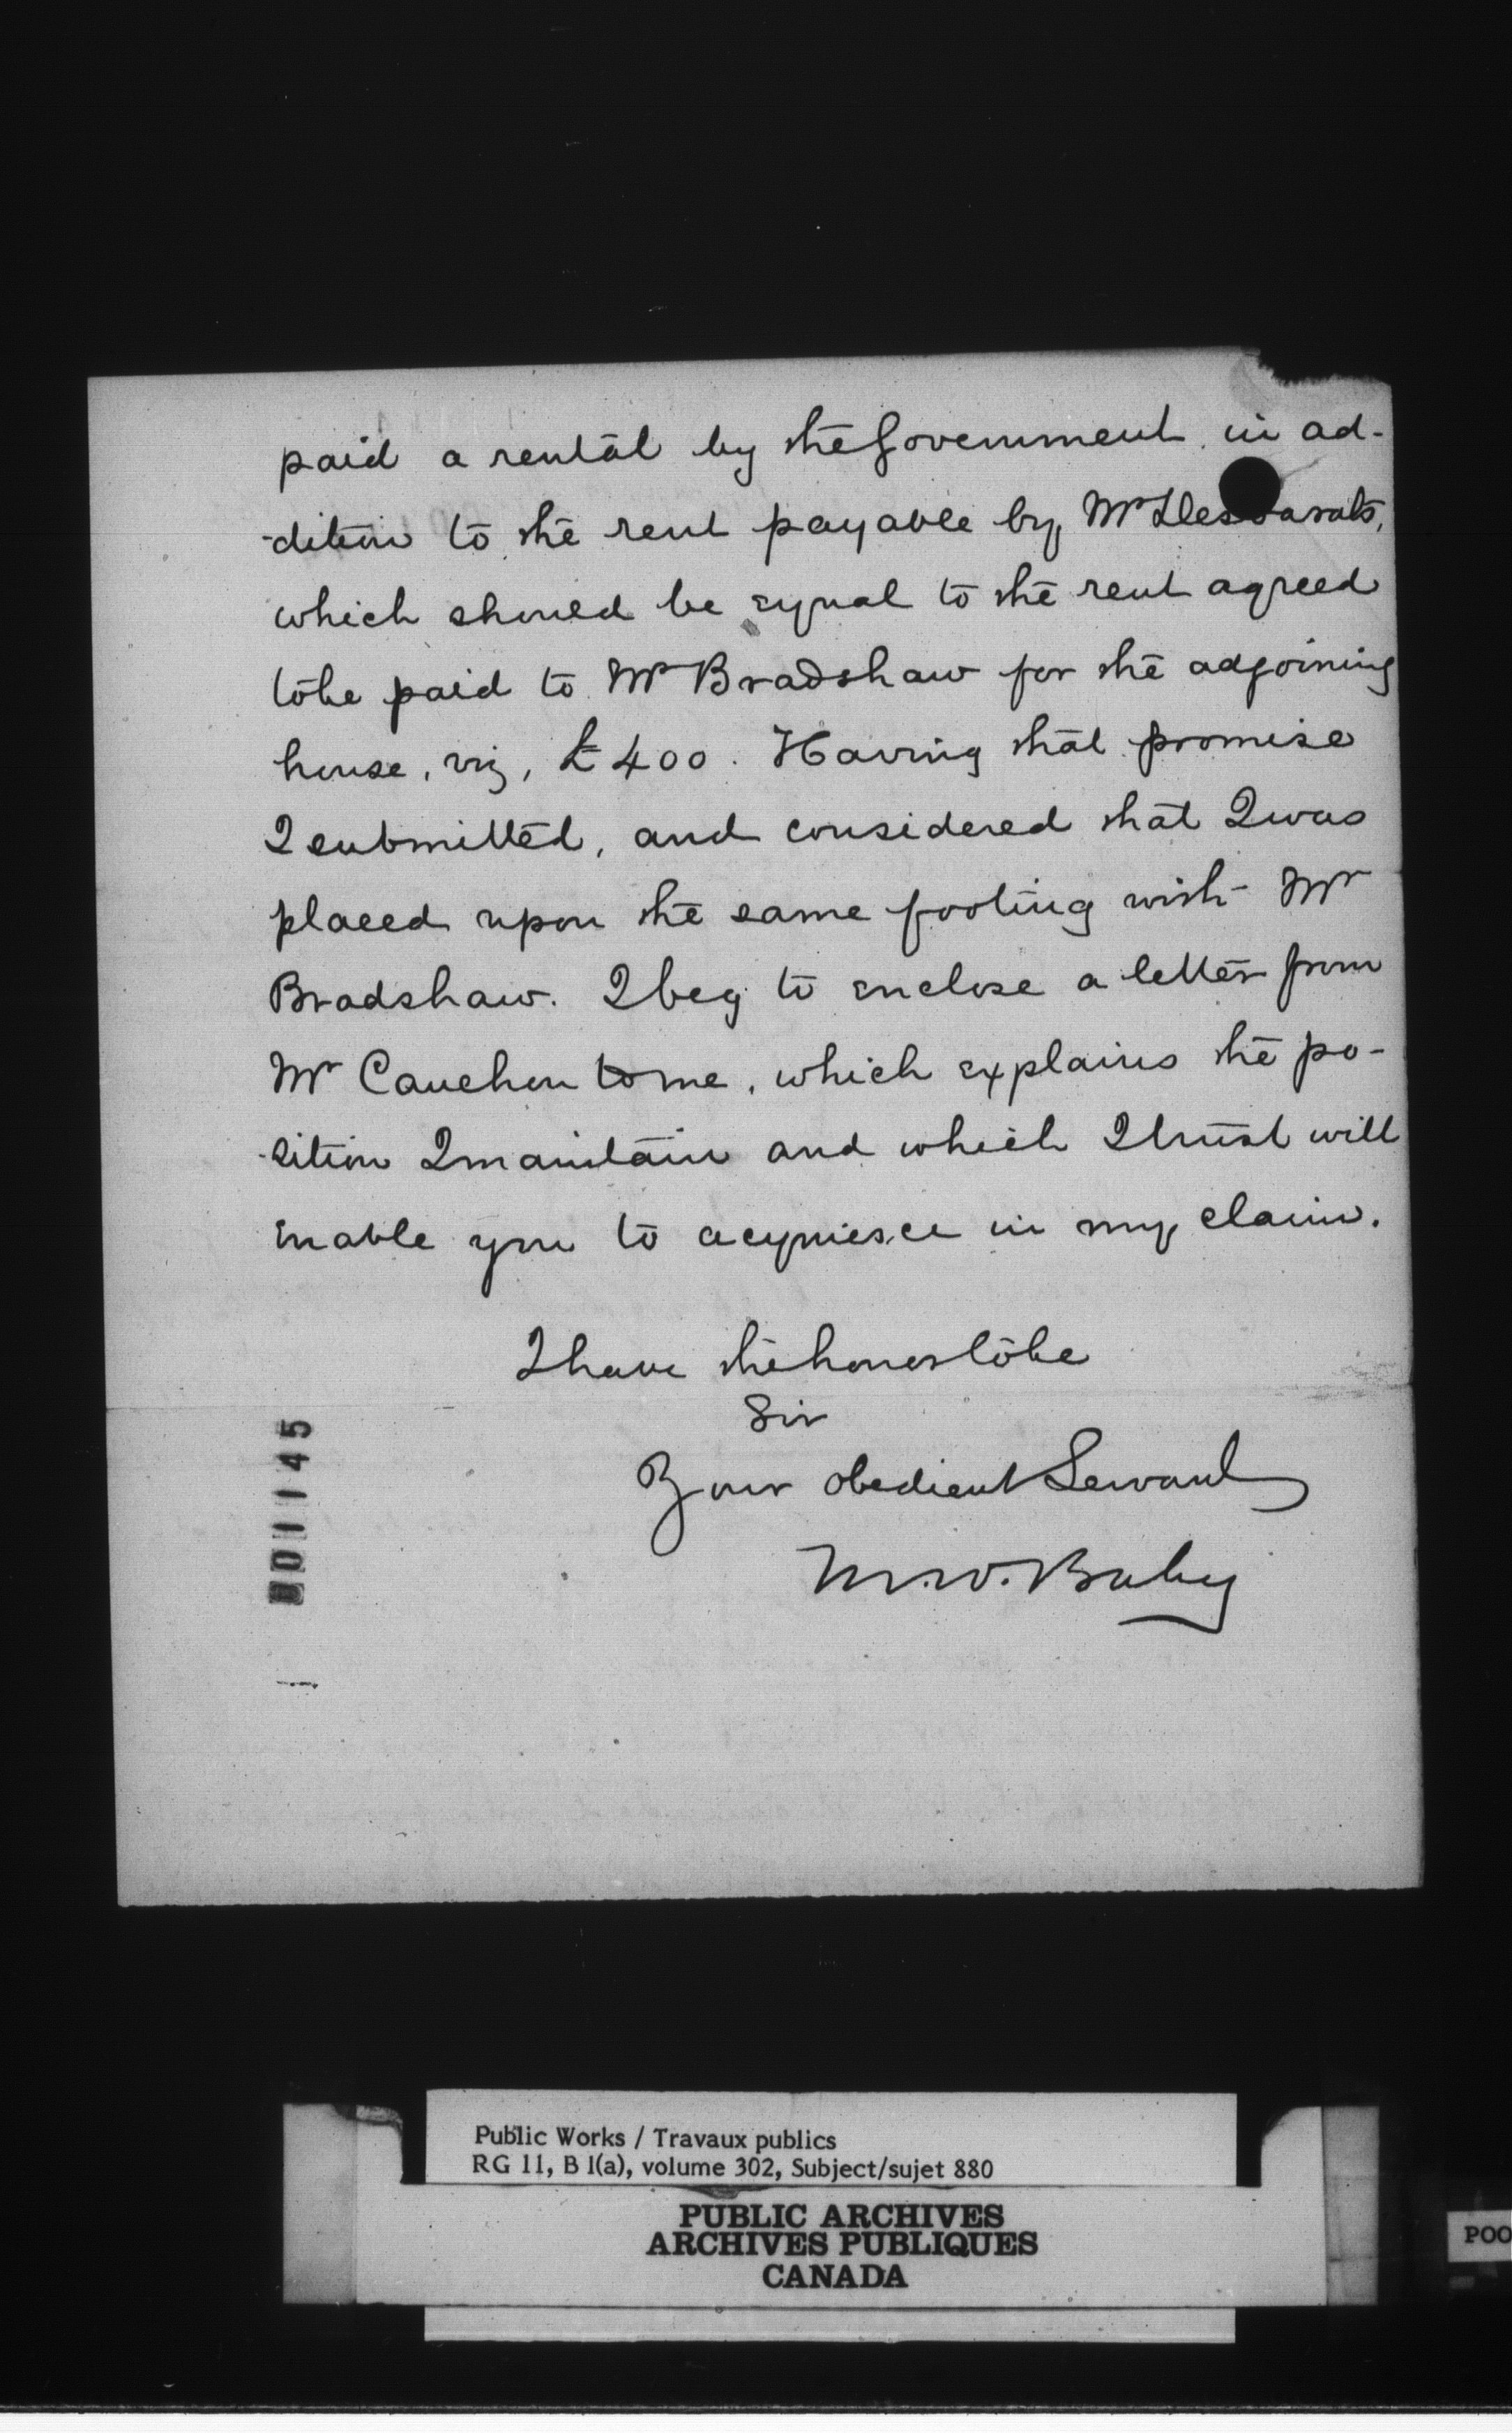 paid a rental by the Government in ad-
-dition to the rent payable by Mr Desbarats,
which should be equal to the rent agreed
to be paid to Mr Bradshaw for the adjoining
house, viz, £400. Having that promise
I submitted, and considered that I was
placed upon the same footing with Mr
Bradshaw. I beg to enclose a letter from
Mr Cauchon to me, which explains the po-
-sition I maintain and which I trust will
enable you to acquiesce in my claim.
I have the honor to be
Sir
Your obedient Servant
M.W. Baby
001145
Public Works / Travaux publics
RG 11, B 1(a), volume 302, Subject/sujet 880
PUBLIC ARCHIVES
ARCHIVES PUBLIQUES
CANADA
POO